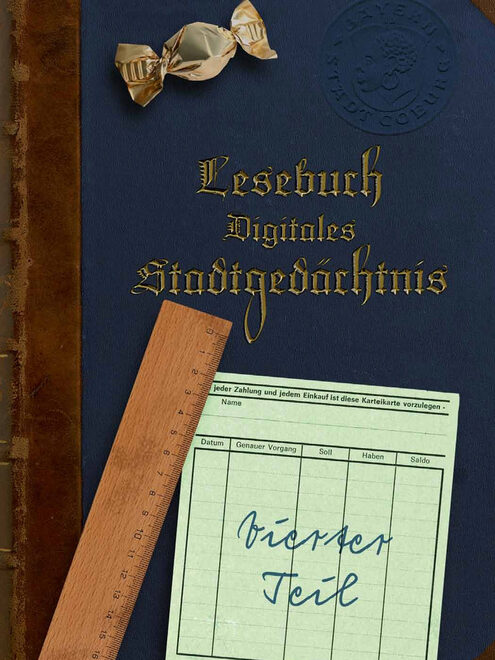 BAYERN
STADT COBURG
Lesebuch
Digitales
Stadtgedächtnis
0 1 2 3 4 5 6 7 8 9 10 11 12 13 14 15 16
jeder Zahlung und jedem Einkauf ist diese Karteikarte vorzulegen -
Name
Datum Genauer Vorgang Soll Haben Saldo
vierter
Teil